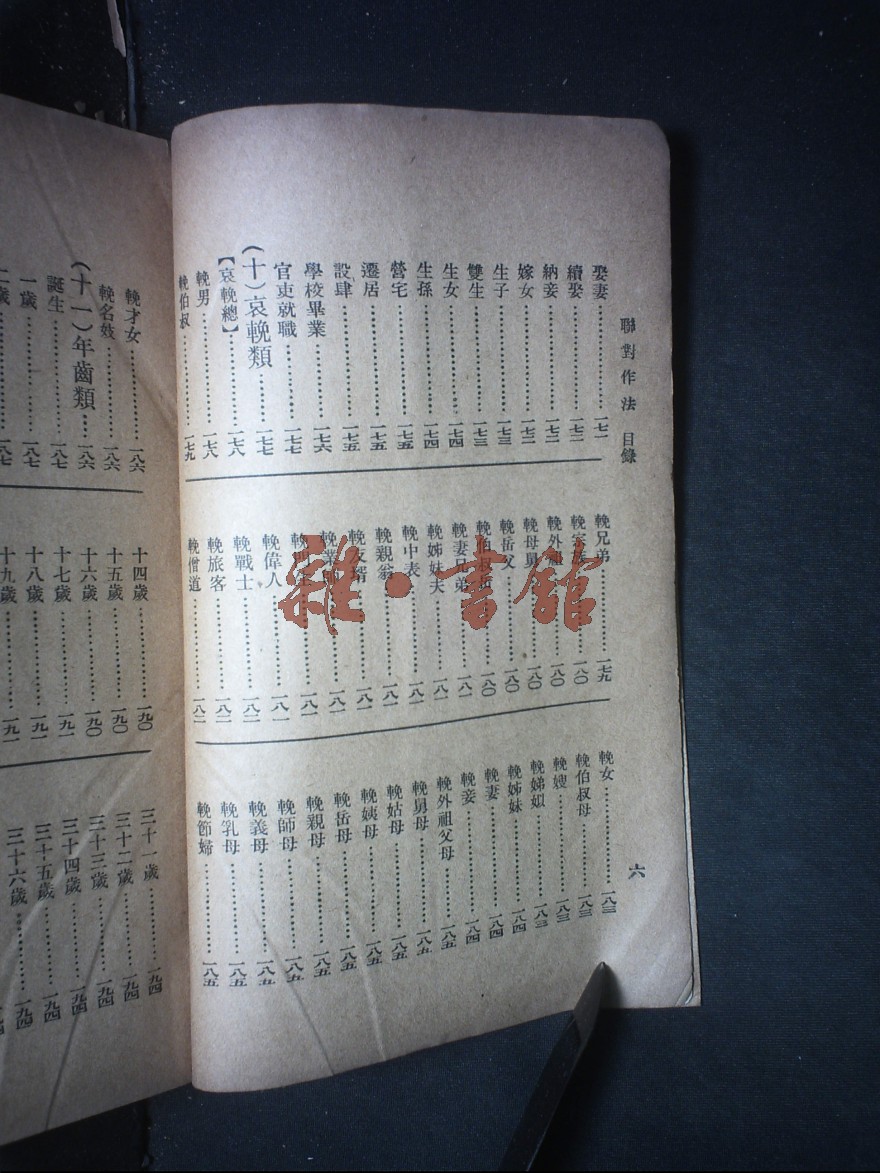 聯對作法 目錄
六
娶妻…………一七一
續娶…………一七二
納妾…………一七二
嫁女…………一七二
生子…………一七三
雙生…………一七三
生女…………一七四
生孫…………一七四
營宅…………一七五
遷居…………一七五
設肆…………一七五
學校畢業…………一七六
官吏就職…………一七七
(十)哀輓類…………一七七
【哀輓總】…………一七八
輓男…………一七八
輓伯叔…………一七九
輓兄弟…………一七九
輓客族…………一八〇
輓外…………一八〇
輓母舅…………一八〇
輓岳父…………一八〇
輓伯叔岳…………一八〇
輓妻兄弟…………一八一
輓姊妹夫…………一八一
輓中表…………一八一
輓親翁…………一八一
輓友…………一八一
輓業…………一八一
輓…………一八一
輓偉人…………一八一
輓戰士…………一八二
輓旅客…………一八二
輓僧道…………一八二
輓女…………一八三
輓伯叔母…………一八三
輓嫂…………一八三
輓娣姒…………一八三
輓姊妹…………一八四
輓妻…………一八四
輓妾…………一八四
輓外祖父母…………一八五
輓舅母…………一八五
輓姑母…………一八五
輓姨母…………一八五
輓岳母…………一八五
輓親母…………一八五
輓師母…………一八五
輓義母…………一八五
輓乳母…………一八五
輓節婦…………一八五
輓才女…………一八六
輓名妓…………一八六
(十一)年齒類…………一八六
誕生…………一八七
一歲…………一八七
二歲…………一八七
十四歲…………一九〇
十五歲…………一九〇
十六歲…………一九〇
十七歲…………一九一
十八歲…………一九一
十九歲…………一九一
三十一歲…………一九四
三十二歲…………一九四
三十三歲…………一九四
三十四歲…………一九四
三十五歲…………一九四
三十六歲…………一九四
雜·書館